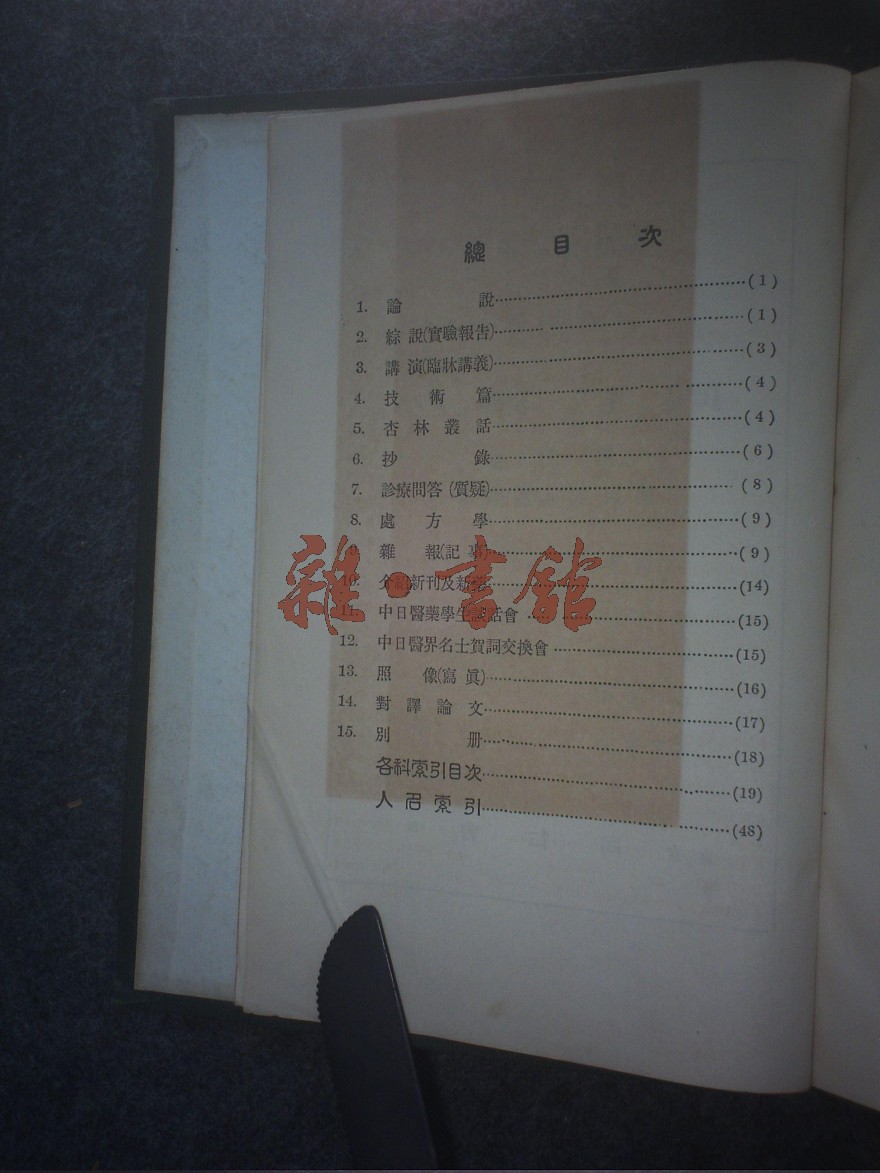 總 目 次
1. 論 說……(1)
2. 綜 說(實驗報告)……(1)
3. 講 演(臨牀講義)……(3)
4. 技 術 篇……(4)
5. 杏 林 叢 話……(4)
6. 抄 錄……(6)
7. 診療問答 (質疑)……(8)
8. 處 方 學……(9)
9. 雜 報(記 事)……(9)
10. 介紹新刊及新藥……(14)
11. 中日醫藥學生談話會……(15)
12. 中日醫界名士賀詞交換會……(15)
13. 照 像(寫 眞)……(16)
14. 對 譯 論 文……(17)
15. 別 册……(18)
各科索引目次……(19)
人名索引……(48)
雜·書館